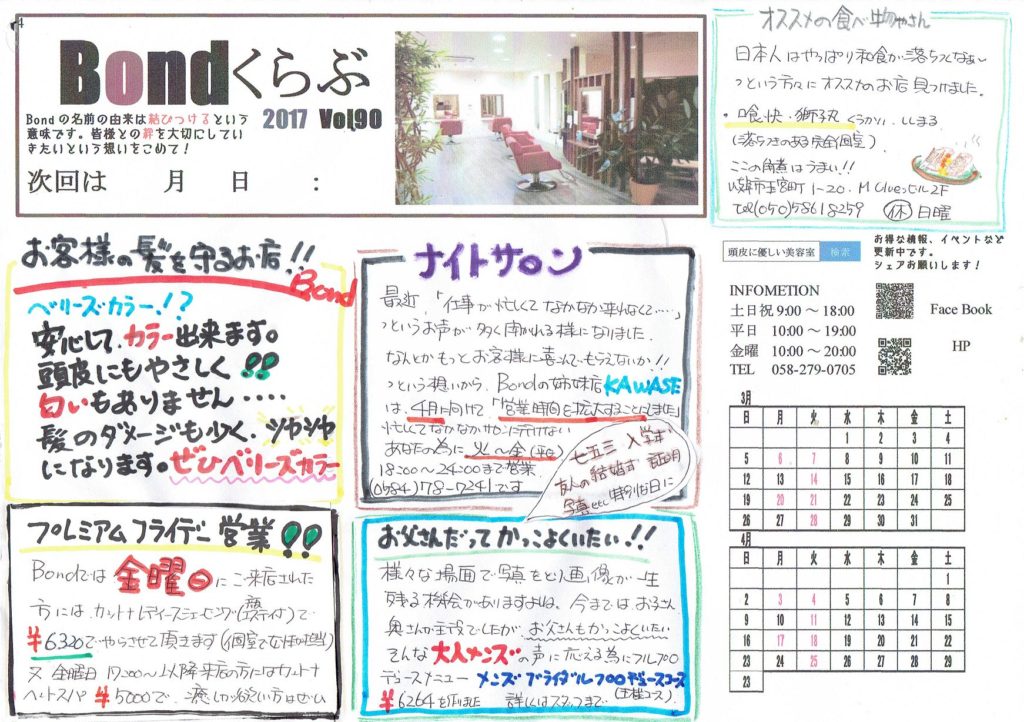 Bondくらぶ
2017 Vol.90
Bondの名前の由来は結びつけるという
意味です。皆様との絆を大切にしてい
きたいという想いをこめて！
次回は　月　日　：
オススメの食べ物やさん
日本人はやっぱり和食が落ちつくなぁ〜
っという方にオススメのお店見つけました。
・喰快・獅子丸 くうかい、ししまる
ここの角煮はうまい!!
tel(050)58618259 休 日曜
お客様の髪を守るお店!!
Bond
ベリーズカラー!?
安心して、カラー出来ます。
頭皮にもやさしく!!
匂いもありません‥‥
髪のダメージも少く、ツヤツヤ
になります。ぜひベリーズカラー
ナイトサロン
最近、「仕事が忙しくてなかなか来れなくて‥‥」
っというお声が多く聞かれる様になりました
なんとかもっとお客様に喜こんでもらえないか!!
っという想いから、Bondの姉妹店KAWASE
は、4月に向けて、「営業時間を拡大することにしました」
忙しくてなかなかサロンに行けない
あなたの為に 火〜金(平日)
18:00〜24:00まで営業
(0584)78-7241です
七五三 入学式
友人の結婚式 証明
写真etc 特別な日に
頭皮に優しい美容室 検索
お得な情報、イベントなど
更新中です。
シェアお願いします！
INFOMETION
土日祝 9:00 〜 18:00
平日 10:00 〜 19:00
金曜 10:00 〜 20:00
TEL 058-279-0705
Face Book
HP
3月
日 月 火 水 木 金 土
1 2 3 4
5 6 7 8 9 10 11
12 13 14 15 16 17 18
19 20 21 22 23 24 25
26 27 28 29 30 31
4月
日 月 火 水 木 金 土
1
2 3 4 5 6 7 8
9 10 11 12 13 14 15
16 17 18 19 20 21 22
23 24 25 26 27 28 29
23
プレミアムフライデー営業!!
Bondでは金曜日にご来店された
方には、カット+レディースシェービング
¥6320でやらせて頂きます(個室で女性が担当)
又 金曜日 17:00〜以降来店の方にはカット+
ヘッドスパ ¥5000で、癒しが欲しい方はぜひ
お父さんだってかっこよくいたい!!
様々な場面で写真など画像が一生
残る機会がありますよね。今までは、お子さん
奥さんが主役でしたが お父さんもかっこよくいたい
そんな大人メンズの声に応える為にフルプロ
デュースメニュー メンズブライダルプロデュースコース
¥6264を作りました 詳しくはスタッフまで